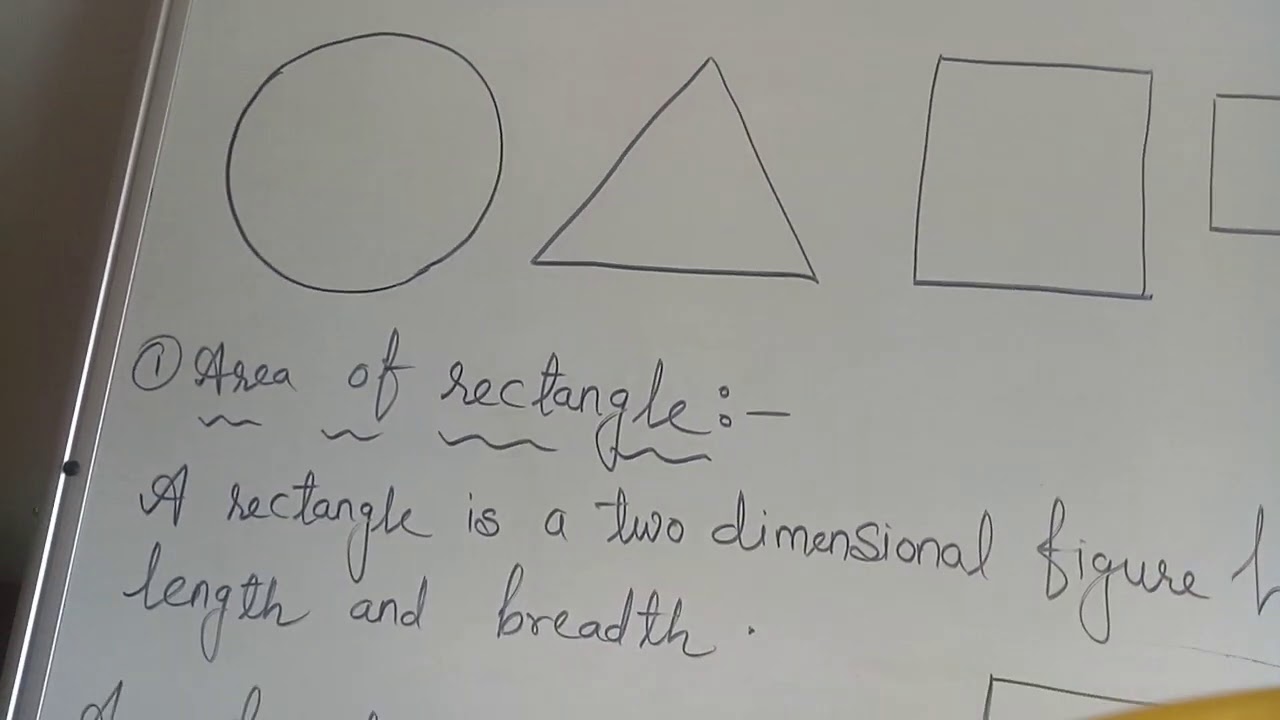 ① Area of rectangle :-
A rectangle is a two dimensional figure
length and breadth .